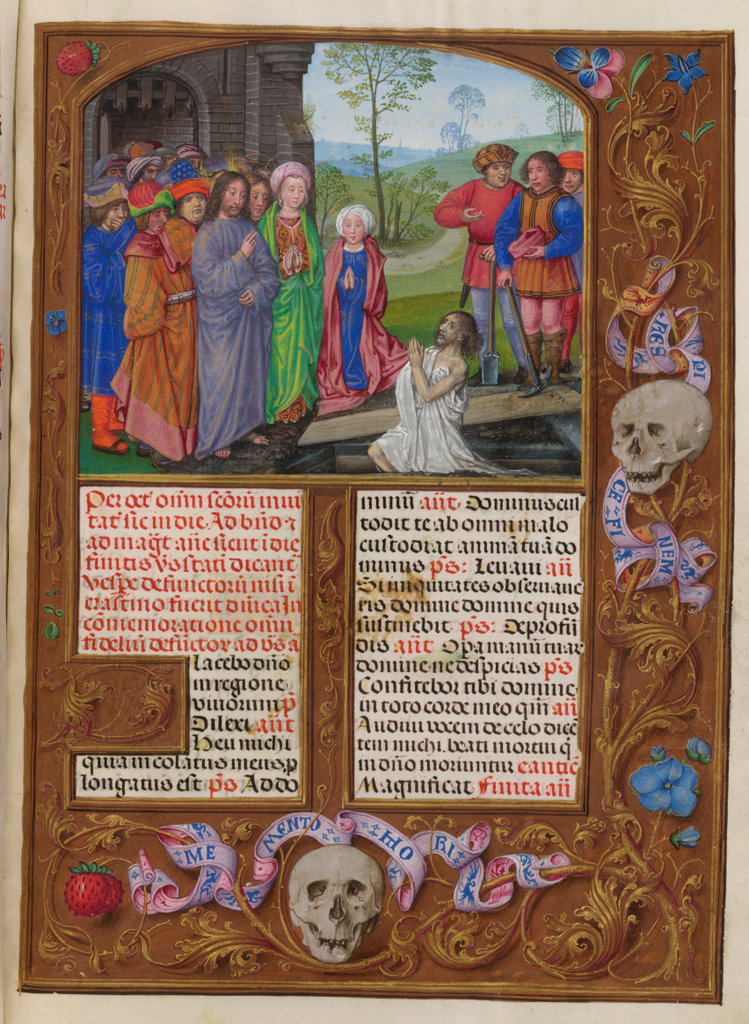 tat sic in die. Ad
ad mag͛t añe sicut ī die
finitis
Vespe defunctorū nisi ī
crastino fuerit dñica In
cōmemoratione oīm
fideliū defūctor ad vs̄ a
lacebo dño
in regione
vivorum p̄s
Dilexi añt
Heu michi
quia incolatus meus p
longatus est ps Ad do
minū añt Dominus cus
todit te ab omni malo
custodiat animā tuā do
minus ps: Levavi añ
Si iniquitates observave
ris domine domine quis
sustinebit ps: De profū
dis añt Opa manuū tuar
domine ne despicias ps
Confitebor tibi domine
in toto corde meo qm̄ añ
Audivi vocem de celo dicē
tem michi beati mortui q̄
in dño moriuntur cantic̄
Magnificat finita añ
RES DI
CE FI
NEM
ME
MENTO
MO
RI